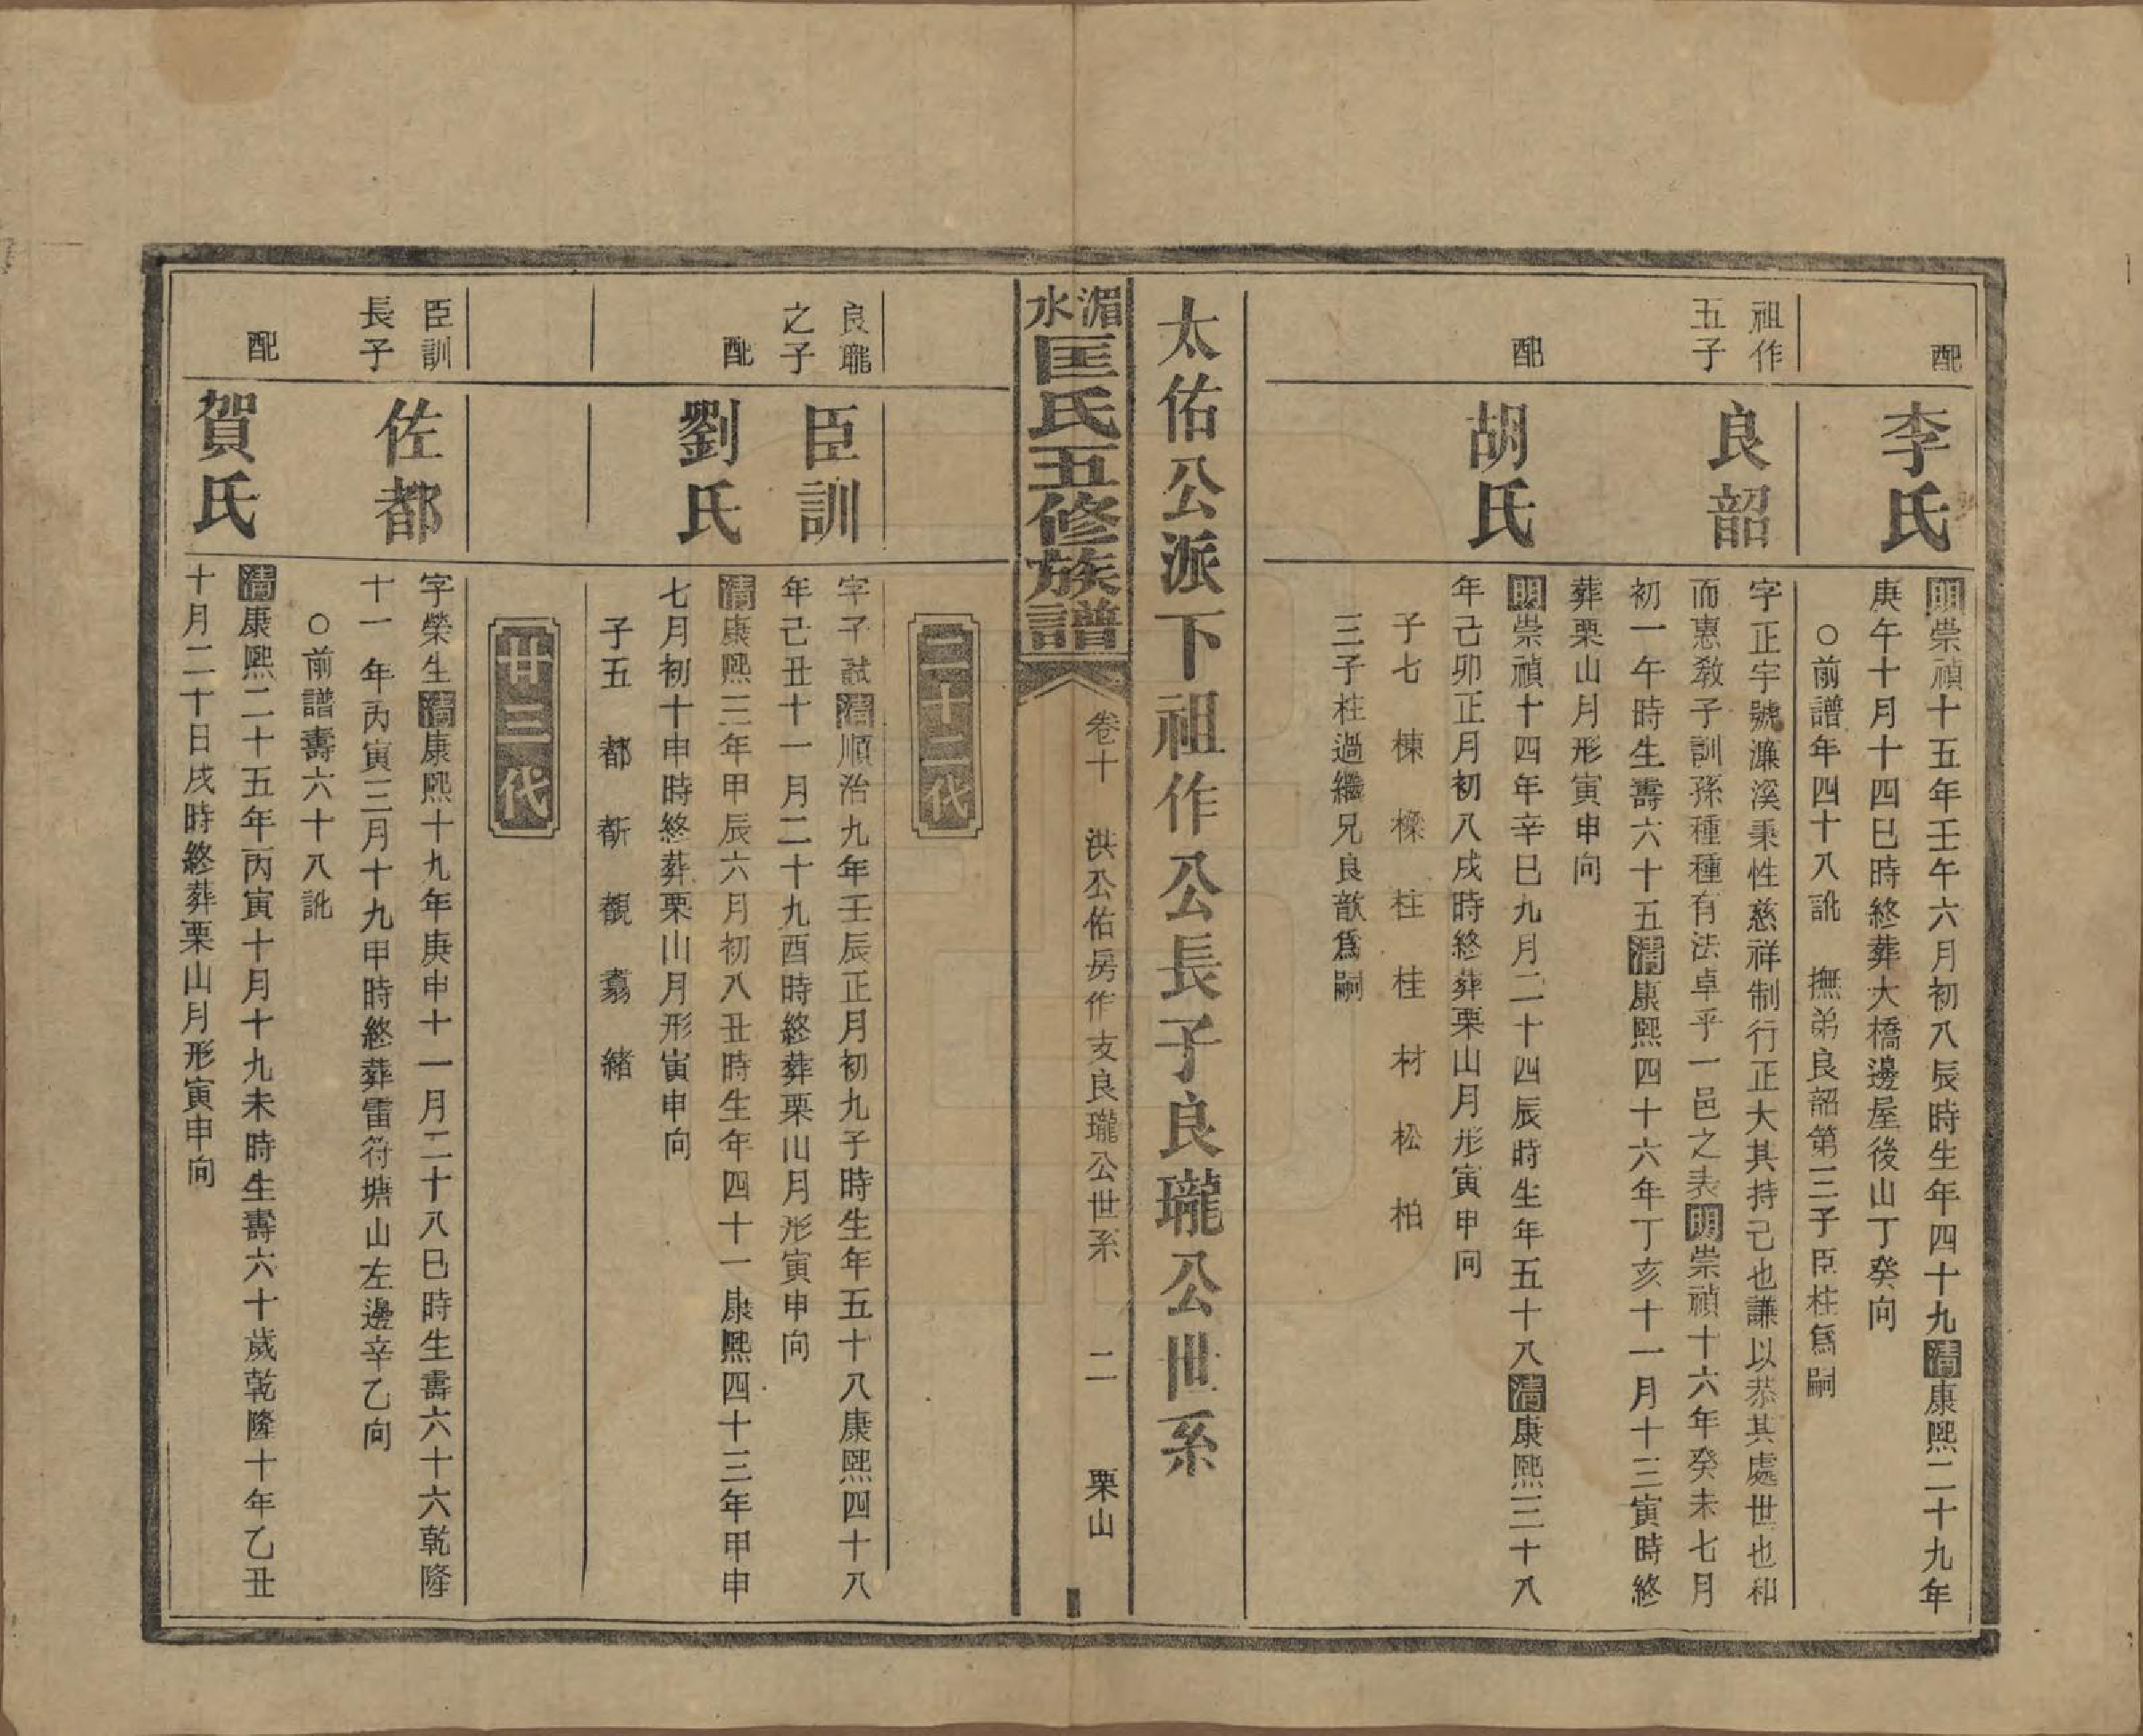 配
李氏
明崇禎十五年壬午六月初八辰時生年四十九清康熙二十九年
庚午十月十四巳時終葬大橋邊屋後山丁癸向
○前譜年四十八訛　撫弟良韶第三子臣柱爲嗣
祖作
五子
良韶
字正宇號濂溪秉性慈祥制行正大其持己也謙以恭其處世也和
而惠教子訓孫種種有法卓乎一邑之表明崇禎十六年癸未七月
初一午時生壽六十五清康熙四十六年丁亥十一月十三寅時終
葬栗山月形寅申向
配
胡氏
明崇禎十四年辛巳九月二十四辰時生年五十八清康熙三十八
年己卯正月初八戌時終葬栗山月形寅申向
子七　棟　樑　柱　桂　材　松　柏
三子柱過繼兄良歆爲嗣
太佑公派下祖作公長子良瓏公世系
湄水匡氏五修族譜
卷十　洪公佑房作支良瓏公世系　二　栗山
二十二代
良瓏
之子
臣訓
字子試清順治九年壬辰正月初九子時生年五十八康熙四十八
年己丑十一月二十九酉時終葬栗山月形寅申向
配
劉氏
清康熙三年甲辰六月初八丑時生年四十一康熙四十三年甲申
七月初十申時終葬栗山月形寅申向
子五　都　斬　觀　翥　緒
廿三代
臣訓
長子
佐都
字榮生清康熙十九年庚申十一月二十八巳時生壽六十六乾隆
十一年丙寅三月十九甲時終葬雷符塘山左邊辛乙向
○前譜壽六十八訛
配
賀氏
清康熙二十五年丙寅十月十九未時生壽六十歲乾隆十年乙丑
十月二十日戌時終葬栗山月形寅申向